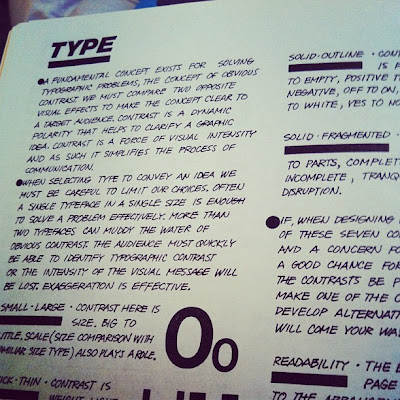 TYPE
A FUNDAMENTAL CONCEPT EXISTS FOR SOLVING
TYPOGRAPHIC PROBLEMS, THE CONCEPT OF OBVIOUS
CONTRAST. WE MUST COMPARE TWO OPPOSITE
VISUAL EFFECTS TO MAKE THE CONCEPT CLEAR TO
A TARGET AUDIENCE. CONTRAST IS A DYNAMIC
POLARITY THAT HELPS TO CLARIFY A GRAPHIC
IDEA. CONTRAST IS A FORCE OF VISUAL INTENSITY
AND AS SUCH IT SIMPLIFIES THE PROCESS OF
COMMUNICATION.
WHEN SELECTING TYPE TO CONVEY AN IDEA WE
MUST BE CAREFUL TO LIMIT OUR CHOICES. OFTEN
A SINGLE TYPEFACE IN A SINGLE SIZE IS ENOUGH
TO SOLVE A PROBLEM EFFECTIVELY. MORE THAN
TWO TYPEFACES CAN MUDDY THE WATER OF
OBVIOUS CONTRAST. THE AUDIENCE MUST QUICKLY
BE ABLE TO IDENTIFY TYPOGRAPHIC CONTRAST
OR THE INTENSITY OF THE VISUAL MESSAGE WILL
BE LOST. EXAGGERATION IS EFFECTIVE.
SMALL · LARGE · CONTRAST HERE IS
SIZE. BIG TO
LITTLE. SCALE (SIZE COMPARISON WITH
FAMILIAR SIZE TYPE) ALSO PLAYS A ROLE.
Oo
THIN · CONTRAST IS
WEIGHT. LIGHT
SOLID · OUTLINE · CONT
IS F
TO EMPTY, POSITIVE T
NEGATIVE, OFF TO ON,
TO WHITE, YES TO NO
SOLID · FRAGMENTED ·
TO PARTS, COMPLET
INCOMPLETE, TRANQ
DISRUPTION.
IF, WHEN DESIGNING
OF THESE SEVEN CO
AND A CONCERN FO
A GOOD CHANCE FOR
THE CONTRASTS BE P
MAKE ONE OF THE C
DEVELOP ALTERNAT
WILL COME YOUR WA
READABILITY · THE E
PAGE
TO THE ARRANGEMEN